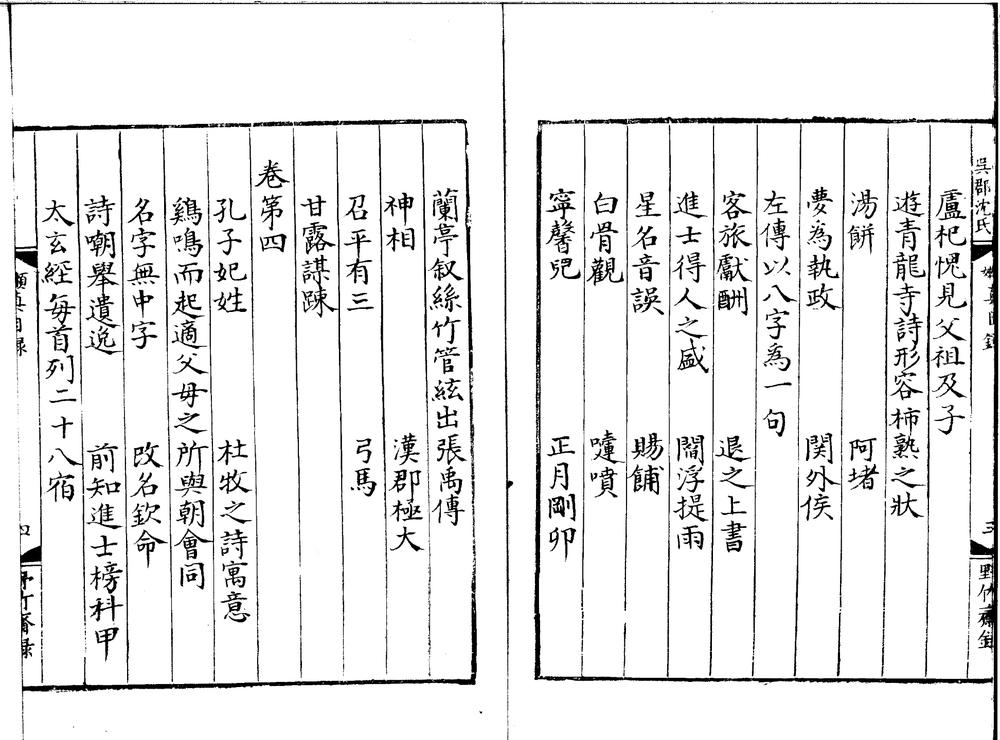 吳郡沈氏
嬾真目錄
三
野竹齋錄
盧杞愧見父祖及子
遊青龍寺詩形容柿熟之狀
湯餅 阿堵
夢為執政 関外侯
左傳以八字為一句
客旅獻酬 退之上書
進士得人之盛 閻浮提雨
星名音誤 賜餔
白骨觀 嚏噴
寧馨兒 正月剛卯
蘭亭叙絲竹管絃出張禹傳
神相 漢郡極大
召平有三 弓馬
甘露謀踈
卷第四
孔子妃姓 杜牧之詩寓意
鷄鳴而起適父母之所與朝會同
名字無中字 改名欽命
詩嘲舉遺逸 前知進士榜科甲
太玄經每首列二十八宿
嬾真目録
四
野竹齋録